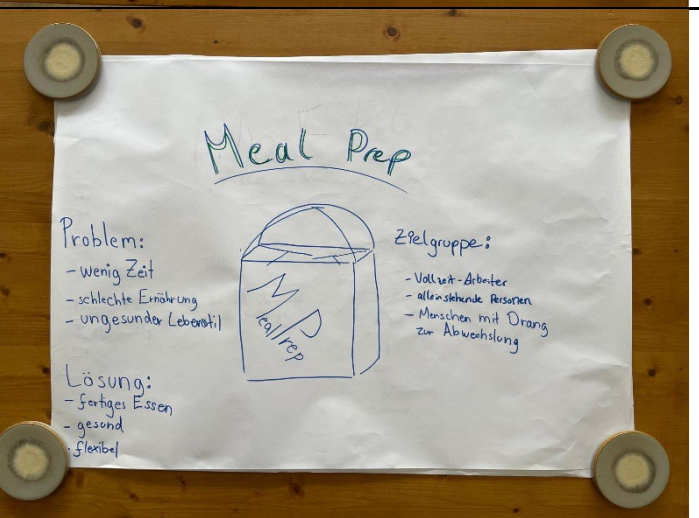 Meal Prep
Problem:
- wenig Zeit
- schlechte Ernährung
- ungesunder Lebenstil
Lösung:
- fertiges Essen
- gesund
- flexibel
MealPrep
Zielgruppe:
- Vollzeit-Arbeiter
- alleinstehende Personen
- Menschen mit Drang
zur Abwechslung